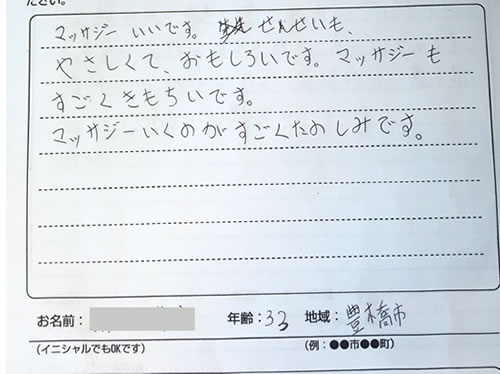 ださい。
マッサジー いいです。 せんせいも、
やさしくて、おもしろいです。マッサジーも
すごくきもちいです。
マッサジーいくのがすごくたのしみです。
お名前： 年齢：33 地域：豊橋市
（イニシャルでもOKです） （例：●●市●●町）